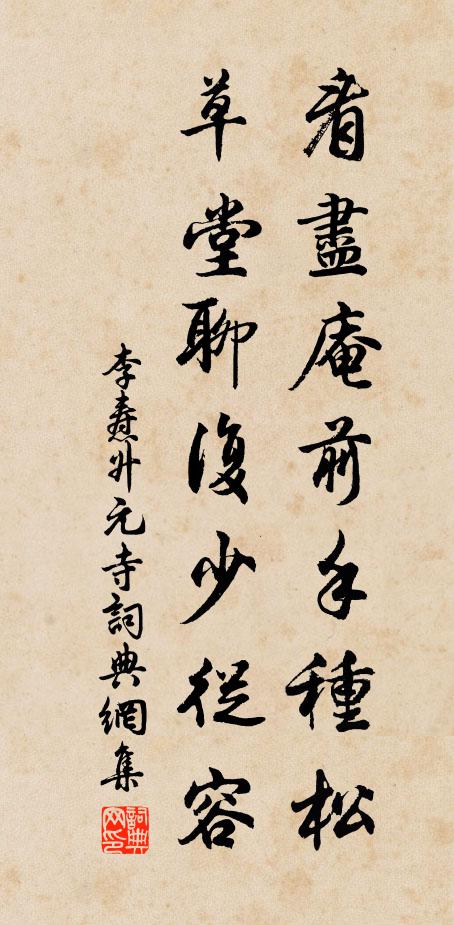 看盡庵前手種松
草堂聊復少從容
李燾升元寺詞典網集
詞典
网印